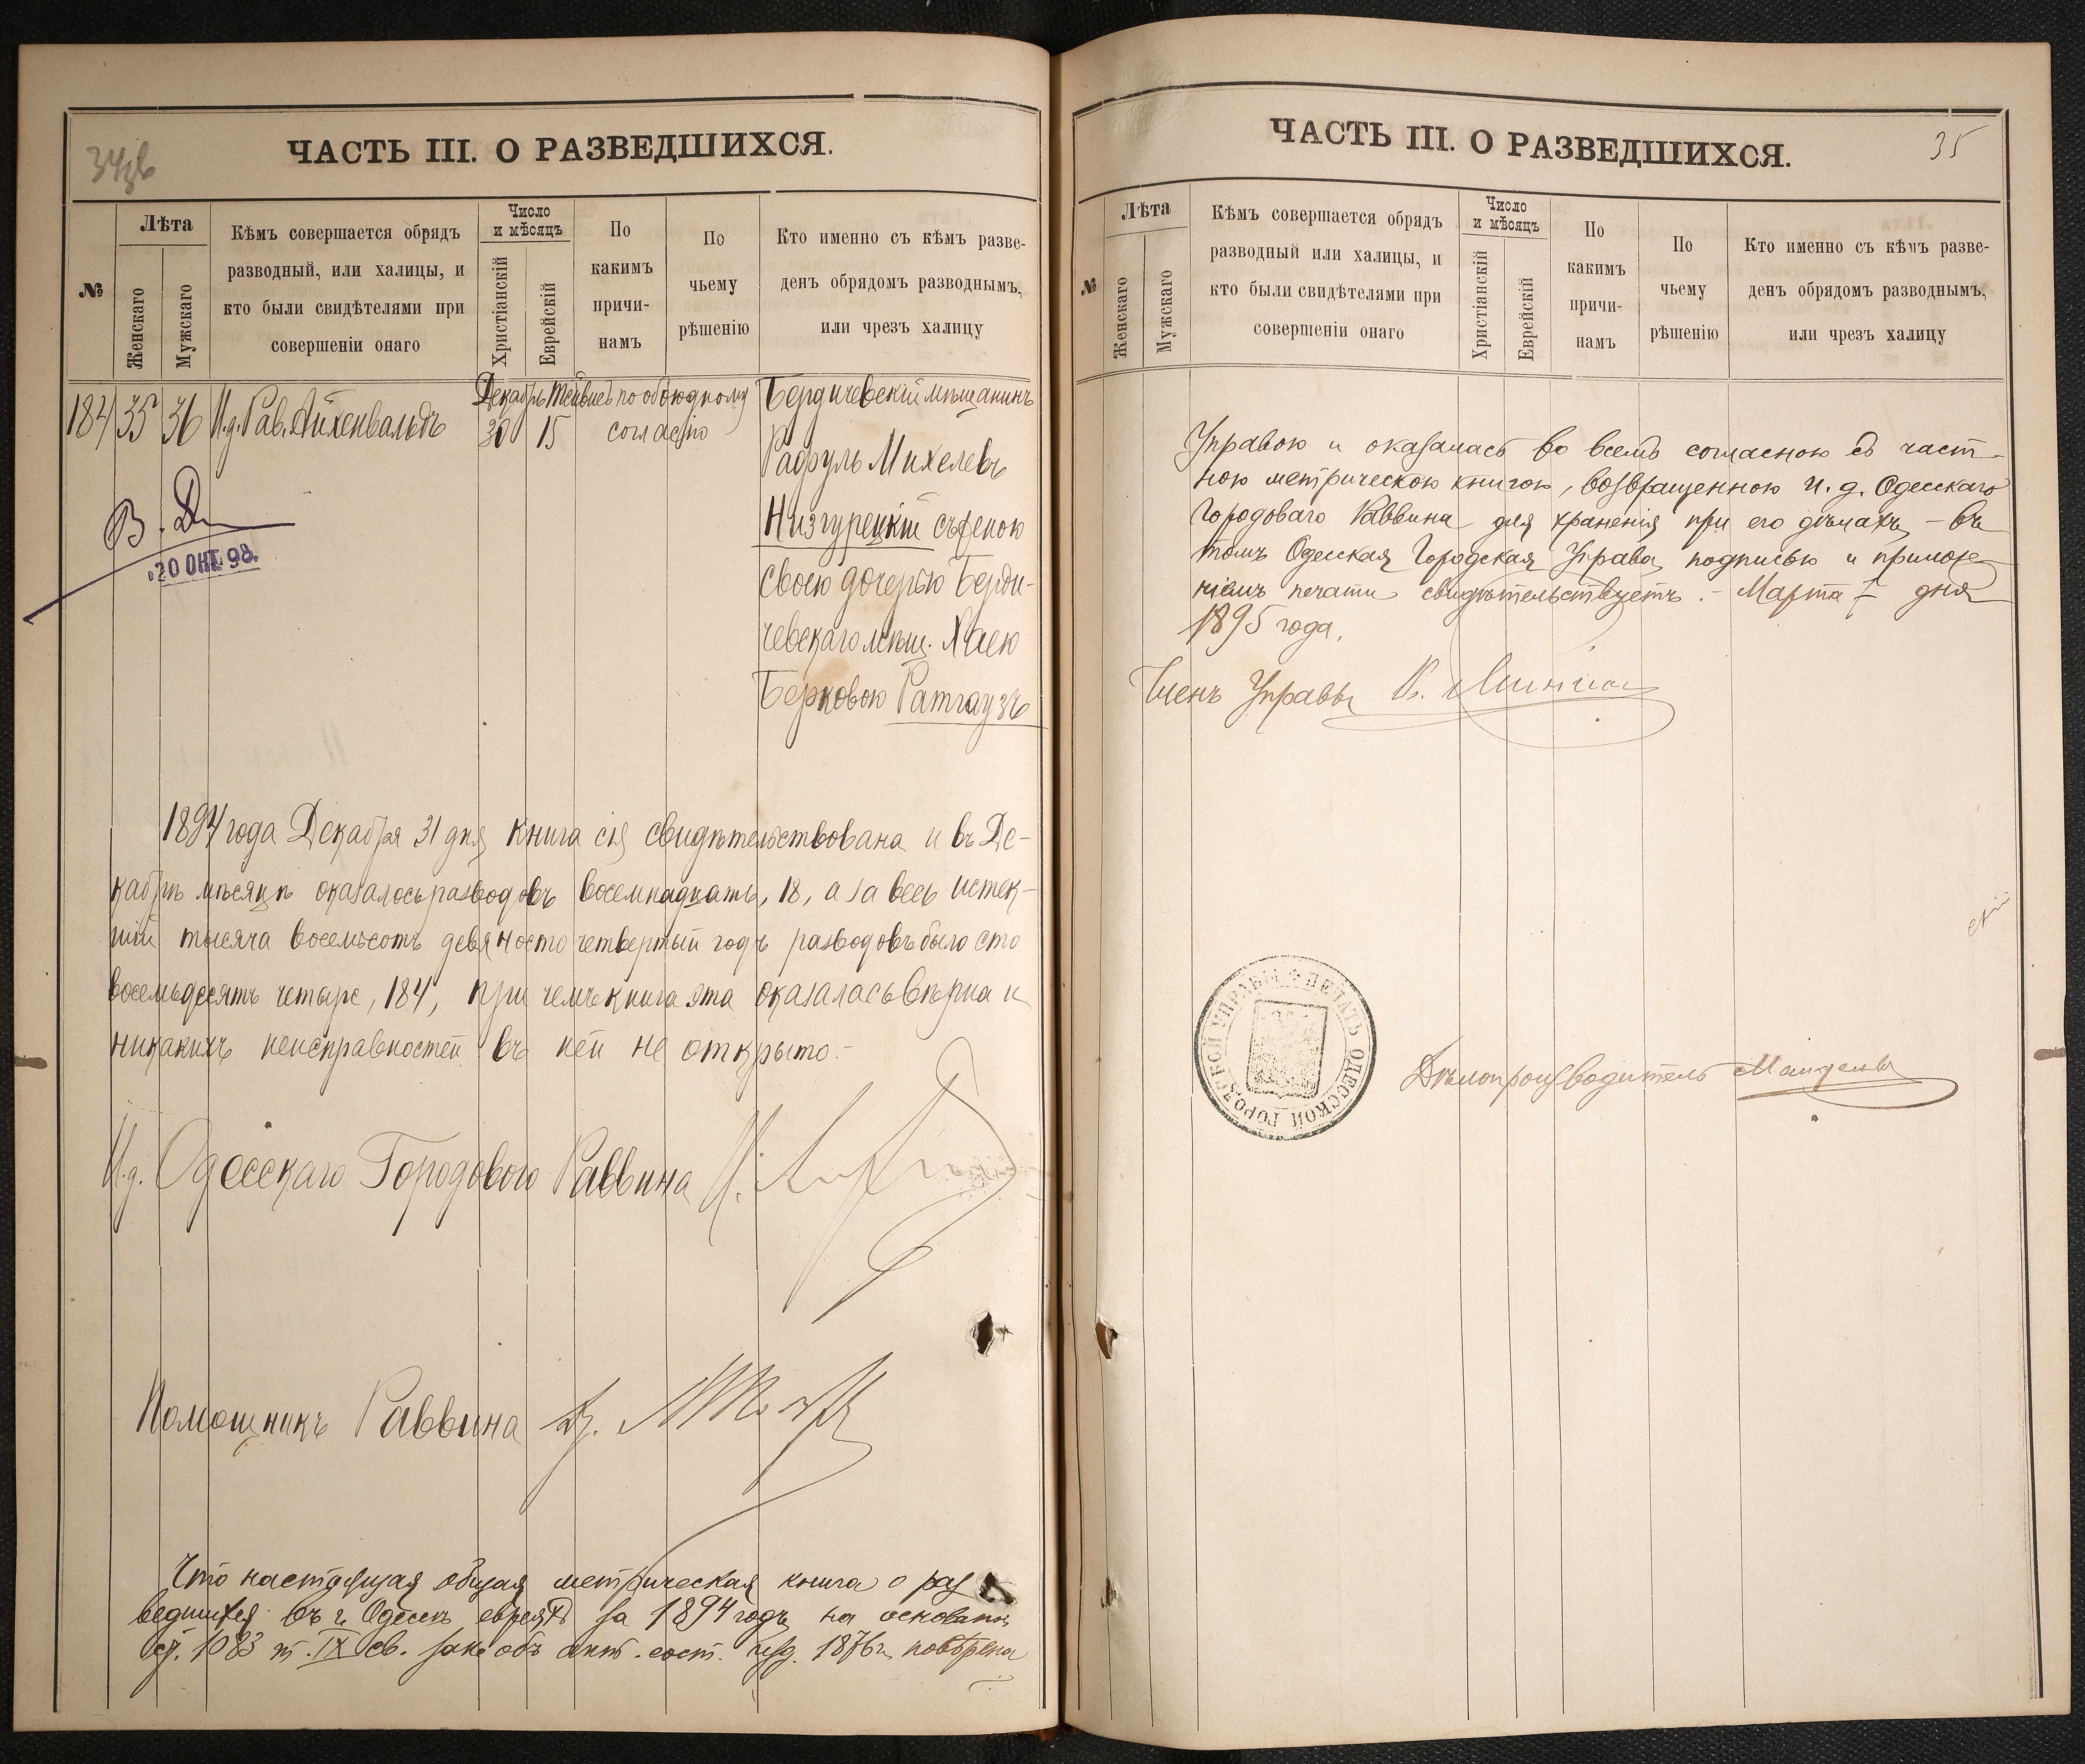 ЧАСТЬ III. О РАЗВЕДШИХСЯ.
№
Лѣта
Женскаго
Мужскаго
Кѣмъ совершается обрядъ
разводный, или халицы, и
кто были свидѣтелями при
совершеніи онаго
Число
и мѣсяцъ
Христіанскій
Еврейскій
По
какимъ
причи-
намъ
По
чьему
рѣшенію
Кто именно съ кѣмъ разве-
денъ обрядомъ разводнымъ,
или чрезъ халицу
184 35 36 И.д. Рав. Айхенвальдъ
Декабрь 30
Тейвисъ 15
по обоюдному
согласію
Бердичевскій мѣщанинъ
Рафуль Михелевъ
Низгурецкій съ женою
своею дочерью Берди-
чевскаго мѣщ. Хаею
Берковою Ратгаузъ
20 ОКТ. 98.
1894 года Декабря 31 дня книга сія свидѣтельствована и въ Де-
кабрѣ мѣсяцѣ оказалось разводовъ восемнадцать, 18, а за весь истек-
шій тысяча восемьсотъ девяносто четвертый годъ разводовъ было сто
восемьдесятъ четыре, 184, при чемъ книга эта оказалась вѣрна и
никакихъ неисправностей въ ней не открыто.-
И.д. Одесскаго Городового Раввина
Помощникъ Раввина
Что настоящая общая метрическая книга о раз
ведшихся въ г. Одессѣ евреяхъ за 1894 годъ на основаніи
ст. 1083 т. IX св. зак. объ акт. сост. изд. 1876 г. повѣрена
ЧАСТЬ III. О РАЗВЕДШИХСЯ.
35
№
Лѣта
Женскаго
Мужскаго
Кѣмъ совершается обрядъ
разводный или халицы, и
кто были свидѣтелями при
совершеніи онаго
Число
и мѣсяцъ
Христіанскій
Еврейскій
По
какимъ
причи-
намъ
По
чьему
рѣшенію
Кто именно съ кѣмъ разве-
денъ обрядомъ разводнымъ,
или чрезъ халицу
Управою и оказалась во всемъ согласною съ част-
ною метрическою книгою, возвращенною и. д. Одесскаго
Городоваго Раввина для храненія при его дѣлахъ, - въ
томъ Одесская Городская Управа подписью и приложе-
ніемъ печати свидѣтельствуетъ. - Марта дня
1895 года.
Членъ Управы
ПЕЧАТЬ ОДЕССКОЙ ГОРОДСКОЙ УПРАВЫ
Дѣлопроизводитель